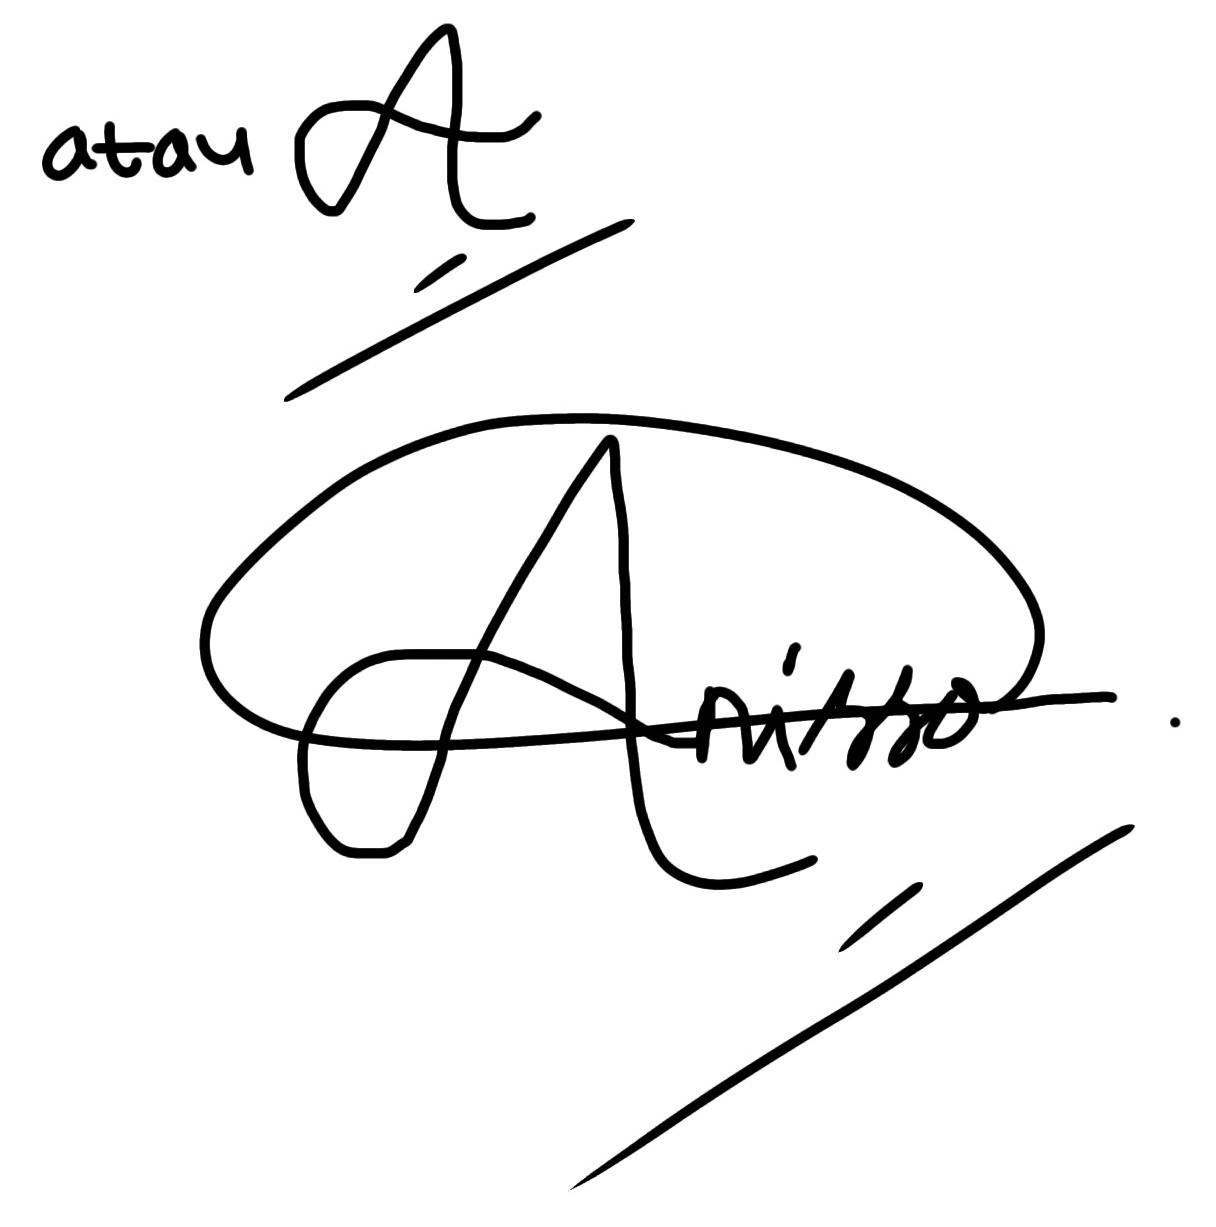 atau A
Anisso